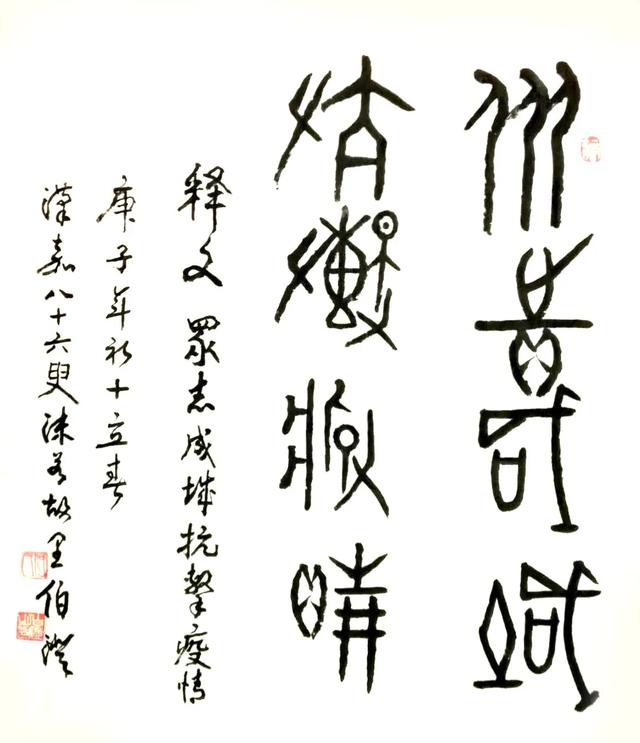 众志成城
抗擊疫情
释文 眾志成城抗擊疫情
庚子年初十立春
漢嘉八十六叟沫若故里伯